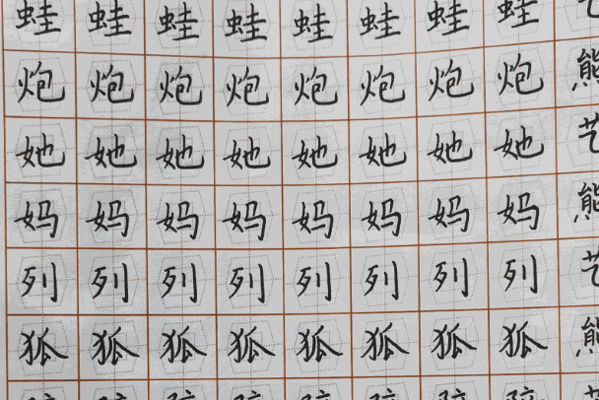 蛙蛙蛙蛙蛙蛙蛙蛙
炮炮炮炮炮炮炮炮熊
她她她她她她她她艺
妈妈妈妈妈妈妈妈熊
列列列列列列列列艺
狐狐狐狐狐狐狐狐熊